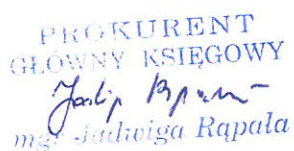 PROKURENT
GŁÓWNY KSIĘGOWY
mgr Jadwiga Rąpała